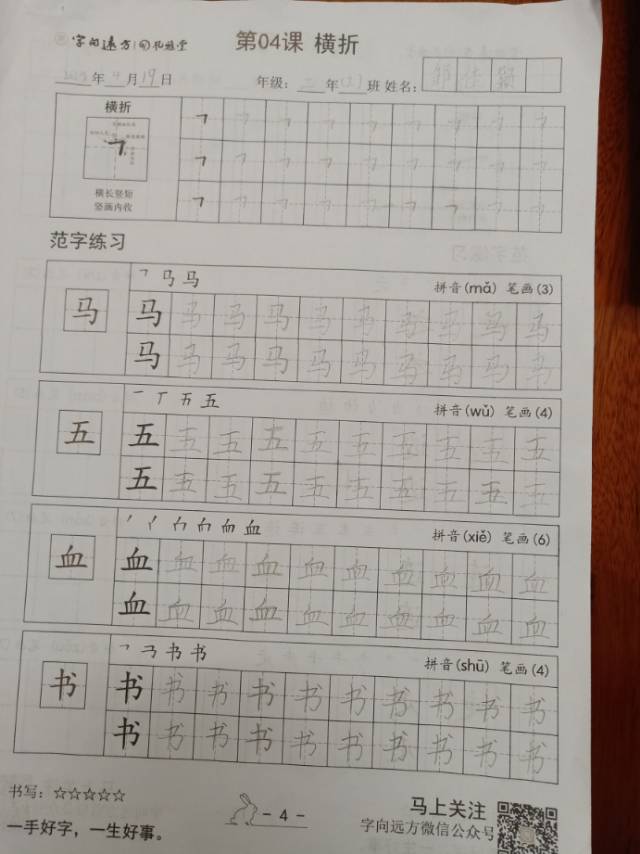 字向远方 第04课 横折
年4月19日 年级：二年(2)班 姓名：
横折
横长竖短
竖画内收
范字练习
㇕ 马 马 拼音(mǎ) 笔画(3)
马 马 马 马 马 马 马 马 马 马 马
马 马 马 马 马 马 马 马 马 马
一 丅 五 五 拼音(wǔ) 笔画(4)
五 五 五 五 五 五 五 五 五 五 五
五 五 五 五 五 五 五 五 五 五
血 拼音(xiě) 笔画(6)
血 血 血 血 血 血 血 血 血 血 血
血 血 血 血 血 血 血 血 血 血
书 书 拼音(shū) 笔画(4)
书 书 书 书 书 书 书 书 书 书 书
书 书 书 书 书 书 书 书 书 书
书写：☆☆☆☆☆
一手好字，一生好事。
- 4 -
马上关注
字向远方微信公众号